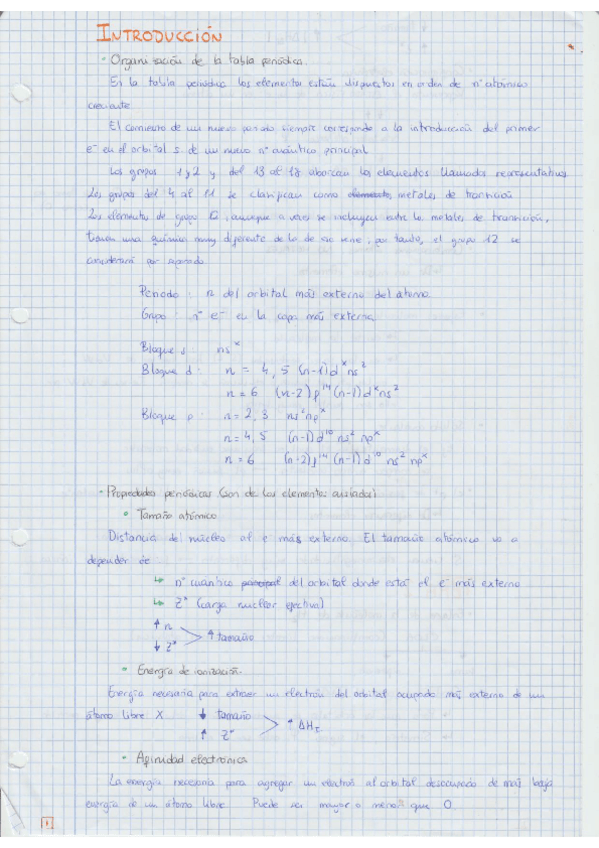 INTRODUCCIÓN
· Organización de la tabla periódica.
En la tabla periódica los elementos están dispuestos en orden de nº atómico
creciente
El comienzo de un nuevo periodo siempre corresponde a la introducción del primer
e⁻ en el orbital s de un nuevo nº cuántico principal
Los grupos 1 y 2 y del 13 al 18 abarcan los elementos llamados representativos
Los grupos del 4 al 11 se clasifican como elementos metales de transición
Los elementos de grupo 12, aunque a veces se incluyen entre los metales de transición,
tienen una química muy diferente de la de esa serie, por tanto, el grupo 12 se
considerará por separado
Periodo : n del orbital más externo del átomo.
Grupo : nº e⁻ en la capa más externa
Bloque s : nsˣ
Bloque d : n = 4, 5 (n-1)dˣns²
n = 6 (n-2)f¹⁴(n-1)dˣns²
Bloque p : n = 2, 3 ns²npˣ
n = 4, 5 (n-1)d¹⁰ ns² npˣ
n = 6 (n-2)f¹⁴ (n-1)d¹⁰ ns² npˣ
· Propiedades periódicas (son de los elementos aislados)
• Tamaño atómico
Distancia del núcleo al e⁻ más externo. El tamaño atómico va a
depender de
↳ nº cuántico principal del orbital donde está el e⁻ más externo
↳ Z* (carga nuclear efectiva)
↑ n
↑ tamaño
↓ Z*
• Energía de ionización.
Energía necesaria para extraer un electrón del orbital ocupado más externo de un
átomo libre X ↓ tamaño
↑ ΔH_I
↑ Z*
• Afinidad electrónica
La energía necesaria para agregar un electrón al orbital desocupado de más baja
energía de un átomo libre. Puede ser mayor o menor que 0
1